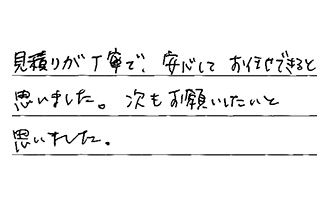 見積りが丁寧で、安心して お任せできると
思いました。次もお願いしたいと
思いました。